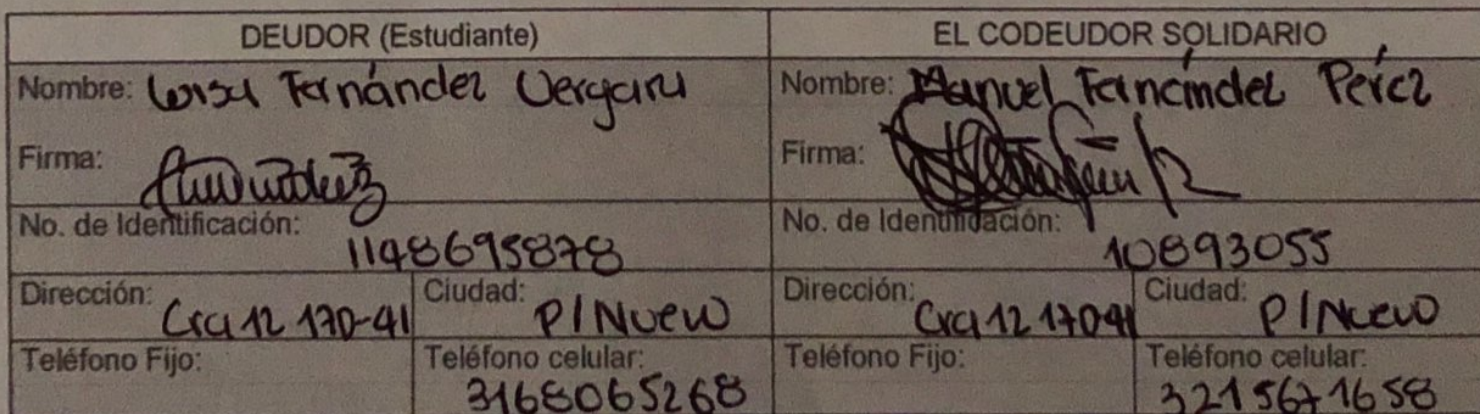 DEUDOR (Estudiante) EL CODEUDOR SOLIDARIO
Nombre: Luisa Fernández Vergara Nombre: Manuel Fernández Pérez
Firma: Firma:
No. de Identificación: 1148695878 No. de Identificación: 10893055
Dirección: Cra 12 170-41 Ciudad: P/Nuevo Dirección: Cra 12 17041 Ciudad: P/Nuevo
Teléfono Fijo: Teléfono celular: 3168065268 Teléfono Fijo: Teléfono celular: 3215671658